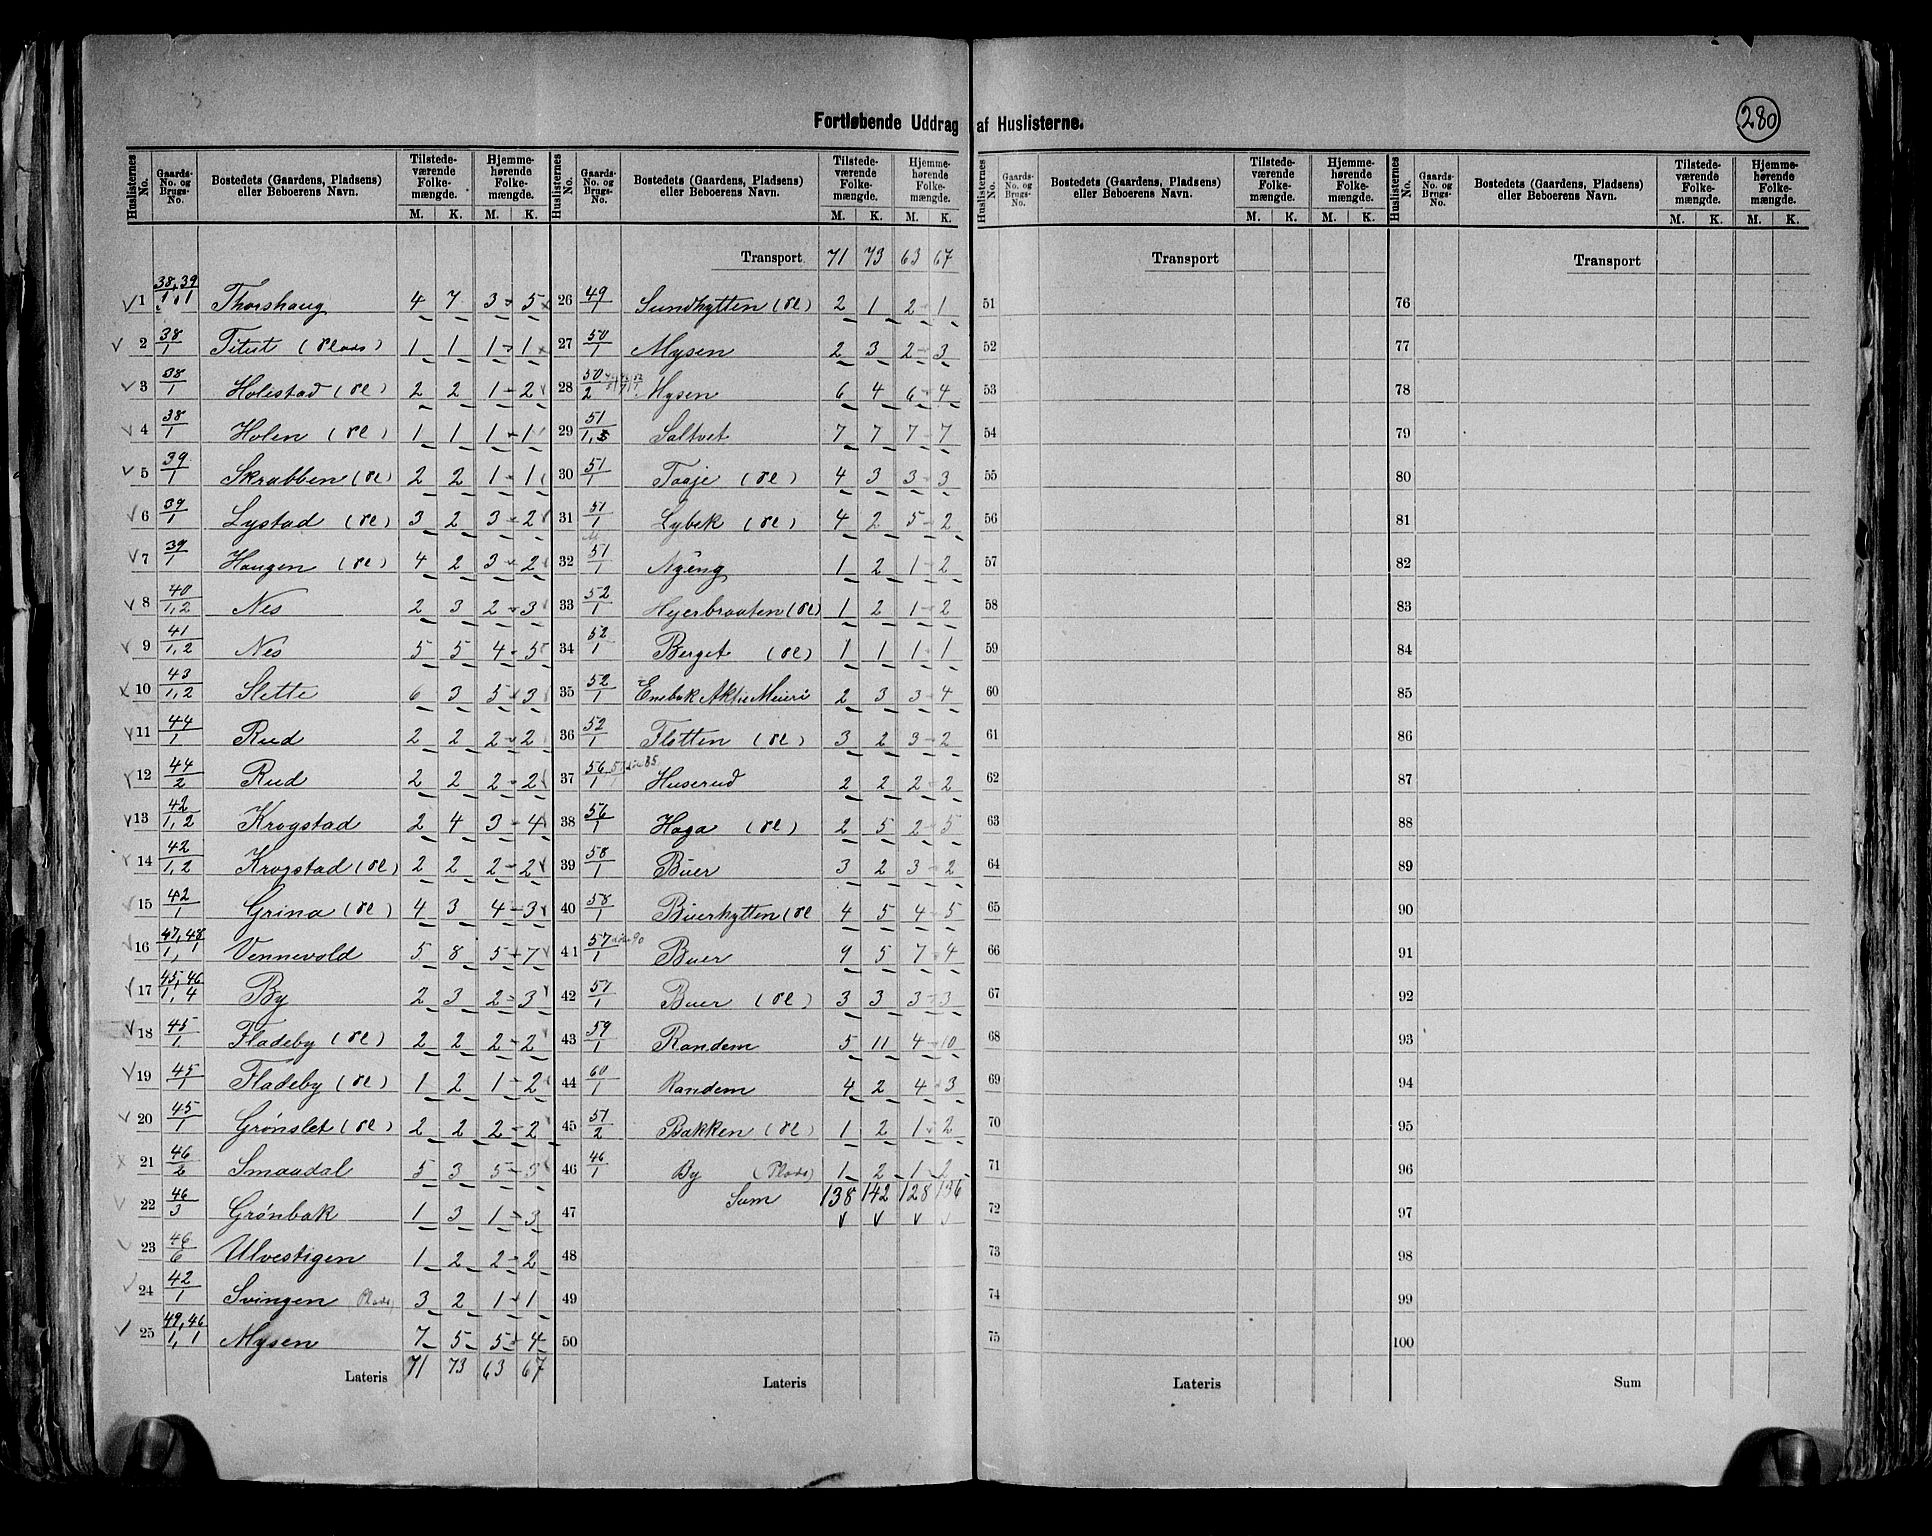 280
Fortløbende Uddrag af Huslisterne.
Huslisternes No. | Gaards-No. og Brugs-No. | Bostedets (Gaardens, Pladsens) eller Beboerens Navn. | Tilstedeværende Folkemængde. M. K. | Hjemmehørende Folkemængde. M. K.
1 38,39/1,1 Thorshaug 4 7 3 5
2 38/1 (Plads) 1 1 1 1
3 38/1 Holestad (Pl) 2 2 1 2
4 38/1 Holen (Pl) 1 1 1 1
5 39/1 Skrabben (Pl) 2 2 1 1
6 39/1 Lystad (Pl) 3 2 3 2
7 39/1 Haugen (Pl) 4 2 3 2
8 40/1,2 Nes 2 3 2 3
9 41/1,2 Nes 5 5 4 5
10 43/1,2 Slette 6 3 5 3
11 44/1 Rud 2 2 2 2
12 44/2 Rud 2 2 2 2
13 42/1,2 Krogstad 2 4 3 4
14 42/1,2 Krogstad (Pl) 2 2 2 2
15 42/1 Grina (Pl) 4 3 4 3
16 47,48/1,1 Vennevold 5 8 5 7
17 45,46/1,4 By 2 3 2 3
18 45/1 Fladeby (Pl) 2 2 2 2
19 45/1 Fladeby (Pl) 1 2 1 2
20 45/1 Grønslet (Pl) 2 2 2 2
21 46/2 Smaadal 5 3 5 3
22 46/3 Grønbak 1 3 1 3
23 46/6 Ulvestigen 1 2 2 2
24 42/1 Svingen (Plads) 3 2 1 1
25 49,46/1,1 Mysen 7 5 5 4
Lateris 71 73 63 67
Huslisternes No. | Gaards-No. og Brugs-No. | Bostedets (Gaardens, Pladsens) eller Beboerens Navn. | Tilstedeværende Folkemængde. M. K. | Hjemmehørende Folkemængde. M. K.
Transport 71 73 63 67
26 49/1 Sundhytten (Pl) 2 1 2 1
27 50/1 Mysen 2 3 2 3
28 50/2 Mysen 6 4 6 4
29 51/1,3 Saltvet 7 7 7 7
30 51/1 Taaje (Pl) 4 3 3 3
31 51/1 Lybek (Pl) 4 2 5 2
32 51/1 Nyeng 1 2 1 2
33 52/1 Hejerbraaten (Pl) 1 2 1 2
34 52/1 Berget (Pl) 1 1 1 1
35 52/1 Enebak Aktie Meieri 2 3 3 4
36 52/1 Flotten (Pl) 3 2 3 2
37 56/1 Huserud 2 2 2 2
38 56/1 Haga (Pl) 2 5 2 5
39 58/1 Buer 3 2 3 2
40 58/1 Buerhytten (Pl 4 5 4 5
41 57/1 Buer 9 5 7 4
42 57/1 Buer (Pl) 3 3 3 3
43 59/1 Randem 5 11 4 10
44 60/1 Randem 4 2 4 3
45 51/2 Bakken (Pl) 1 2 1 2
46 46/1 By (Plads) 1 2 1 2
47 Sum 138 142 128 136
48
49
50
Lateris
Huslisternes No. | Gaards-No. og Brugs-No. | Bostedets (Gaardens, Pladsens) eller Beboerens Navn. | Tilstedeværende Folkemængde. M. K. | Hjemmehørende Folkemængde. M. K.
Transport
51
52
53
54
55
56
57
58
59
60
61
62
63
64
65
66
67
68
69
70
71
72
73
74
75
Lateris
Huslisternes No. | Gaards-No. og Brugs-No. | Bostedets (Gaardens, Pladsens) eller Beboerens Navn. | Tilstedeværende Folkemængde. M. K. | Hjemmehørende Folkemængde. M. K.
Transport
76
77
78
79
80
81
82
83
84
85
86
87
88
89
90
91
92
93
94
95
96
97
98
99
100
Sum